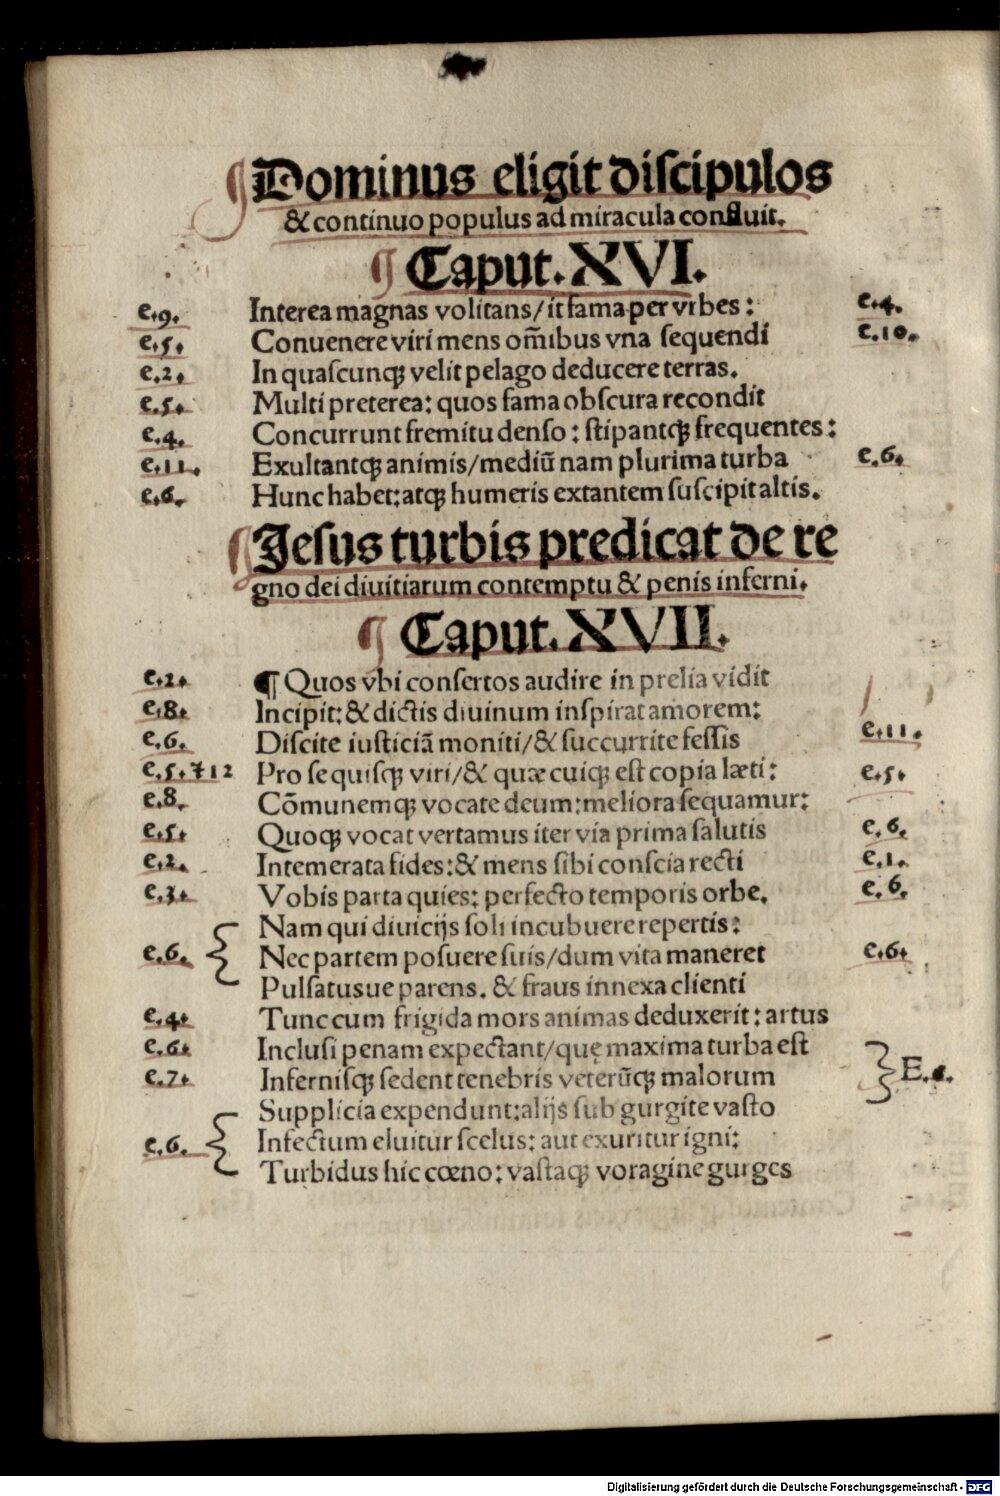 Dominus eligit discipulos
& continuo populus ad miracula confluit.
Caput. XVI.
e.9. Interea magnas volitans/it fama per vrbes: e.4.
e.5. Conuenere viri mens om̄ibus vna sequendi e.10.
e.2. In quascunqꝫ velit pelago deducere terras.
e.5. Multi preterea: quos fama obscura recondit
e.4. Concurrunt fremitu denso: stipantqꝫ frequentes:
e.11. Exultantqꝫ animis/mediū nam plurima turba e.6.
e.6. Hunc habet:atqꝫ humeris extantem suscipit altis.
Jesus turbis predicat de re
gno dei diuitiarum contemptu & penis inferni.
Caput. XVII.
e.2. ¶ Quos vbi consertos audire in prelia vidit
e.8. Incipit: & dictis diuinum inspirat amorem:
e.6. Discite iusticiā moniti/& succurrite fessis e.11.
e.5. ⁊ 12 Pro se quisqꝫ viri/& quæ cuiqꝫ est copia læti: e.5.
e.8. Cōmunemqꝫ vocate deum:meliora sequamur:
e.5. Quoqꝫ vocat vertamus iter via prima salutis e.6.
e.2. Intemerata fides:& mens sibi conscia recti e.1.
e.3. Vobis parta quies: perfecto temporis orbe. e.6.
Nam qui diuicijs soli incubuere repertis:
e.6. Nec partem posuere suis/dum vita maneret e.6.
Pulsatusue parens. & fraus innexa clienti
e.4. Tunc cum frigida mors animas deduxerit: artus
e.6. Inclusi penam expectant/quę maxima turba est
e.7. Infernisqꝫ sedent tenebris veterūqꝫ malorum E.6.
Supplicia expendunt:alijs sub gurgite vasto
e.6. Infectum eluitur scelus: aut exuritur igni:
Turbidus hic cœno: vastaqꝫ voragine gurges
Digitalisierung gefördert durch die Deutsche Forschungsgemeinschaft - DFG